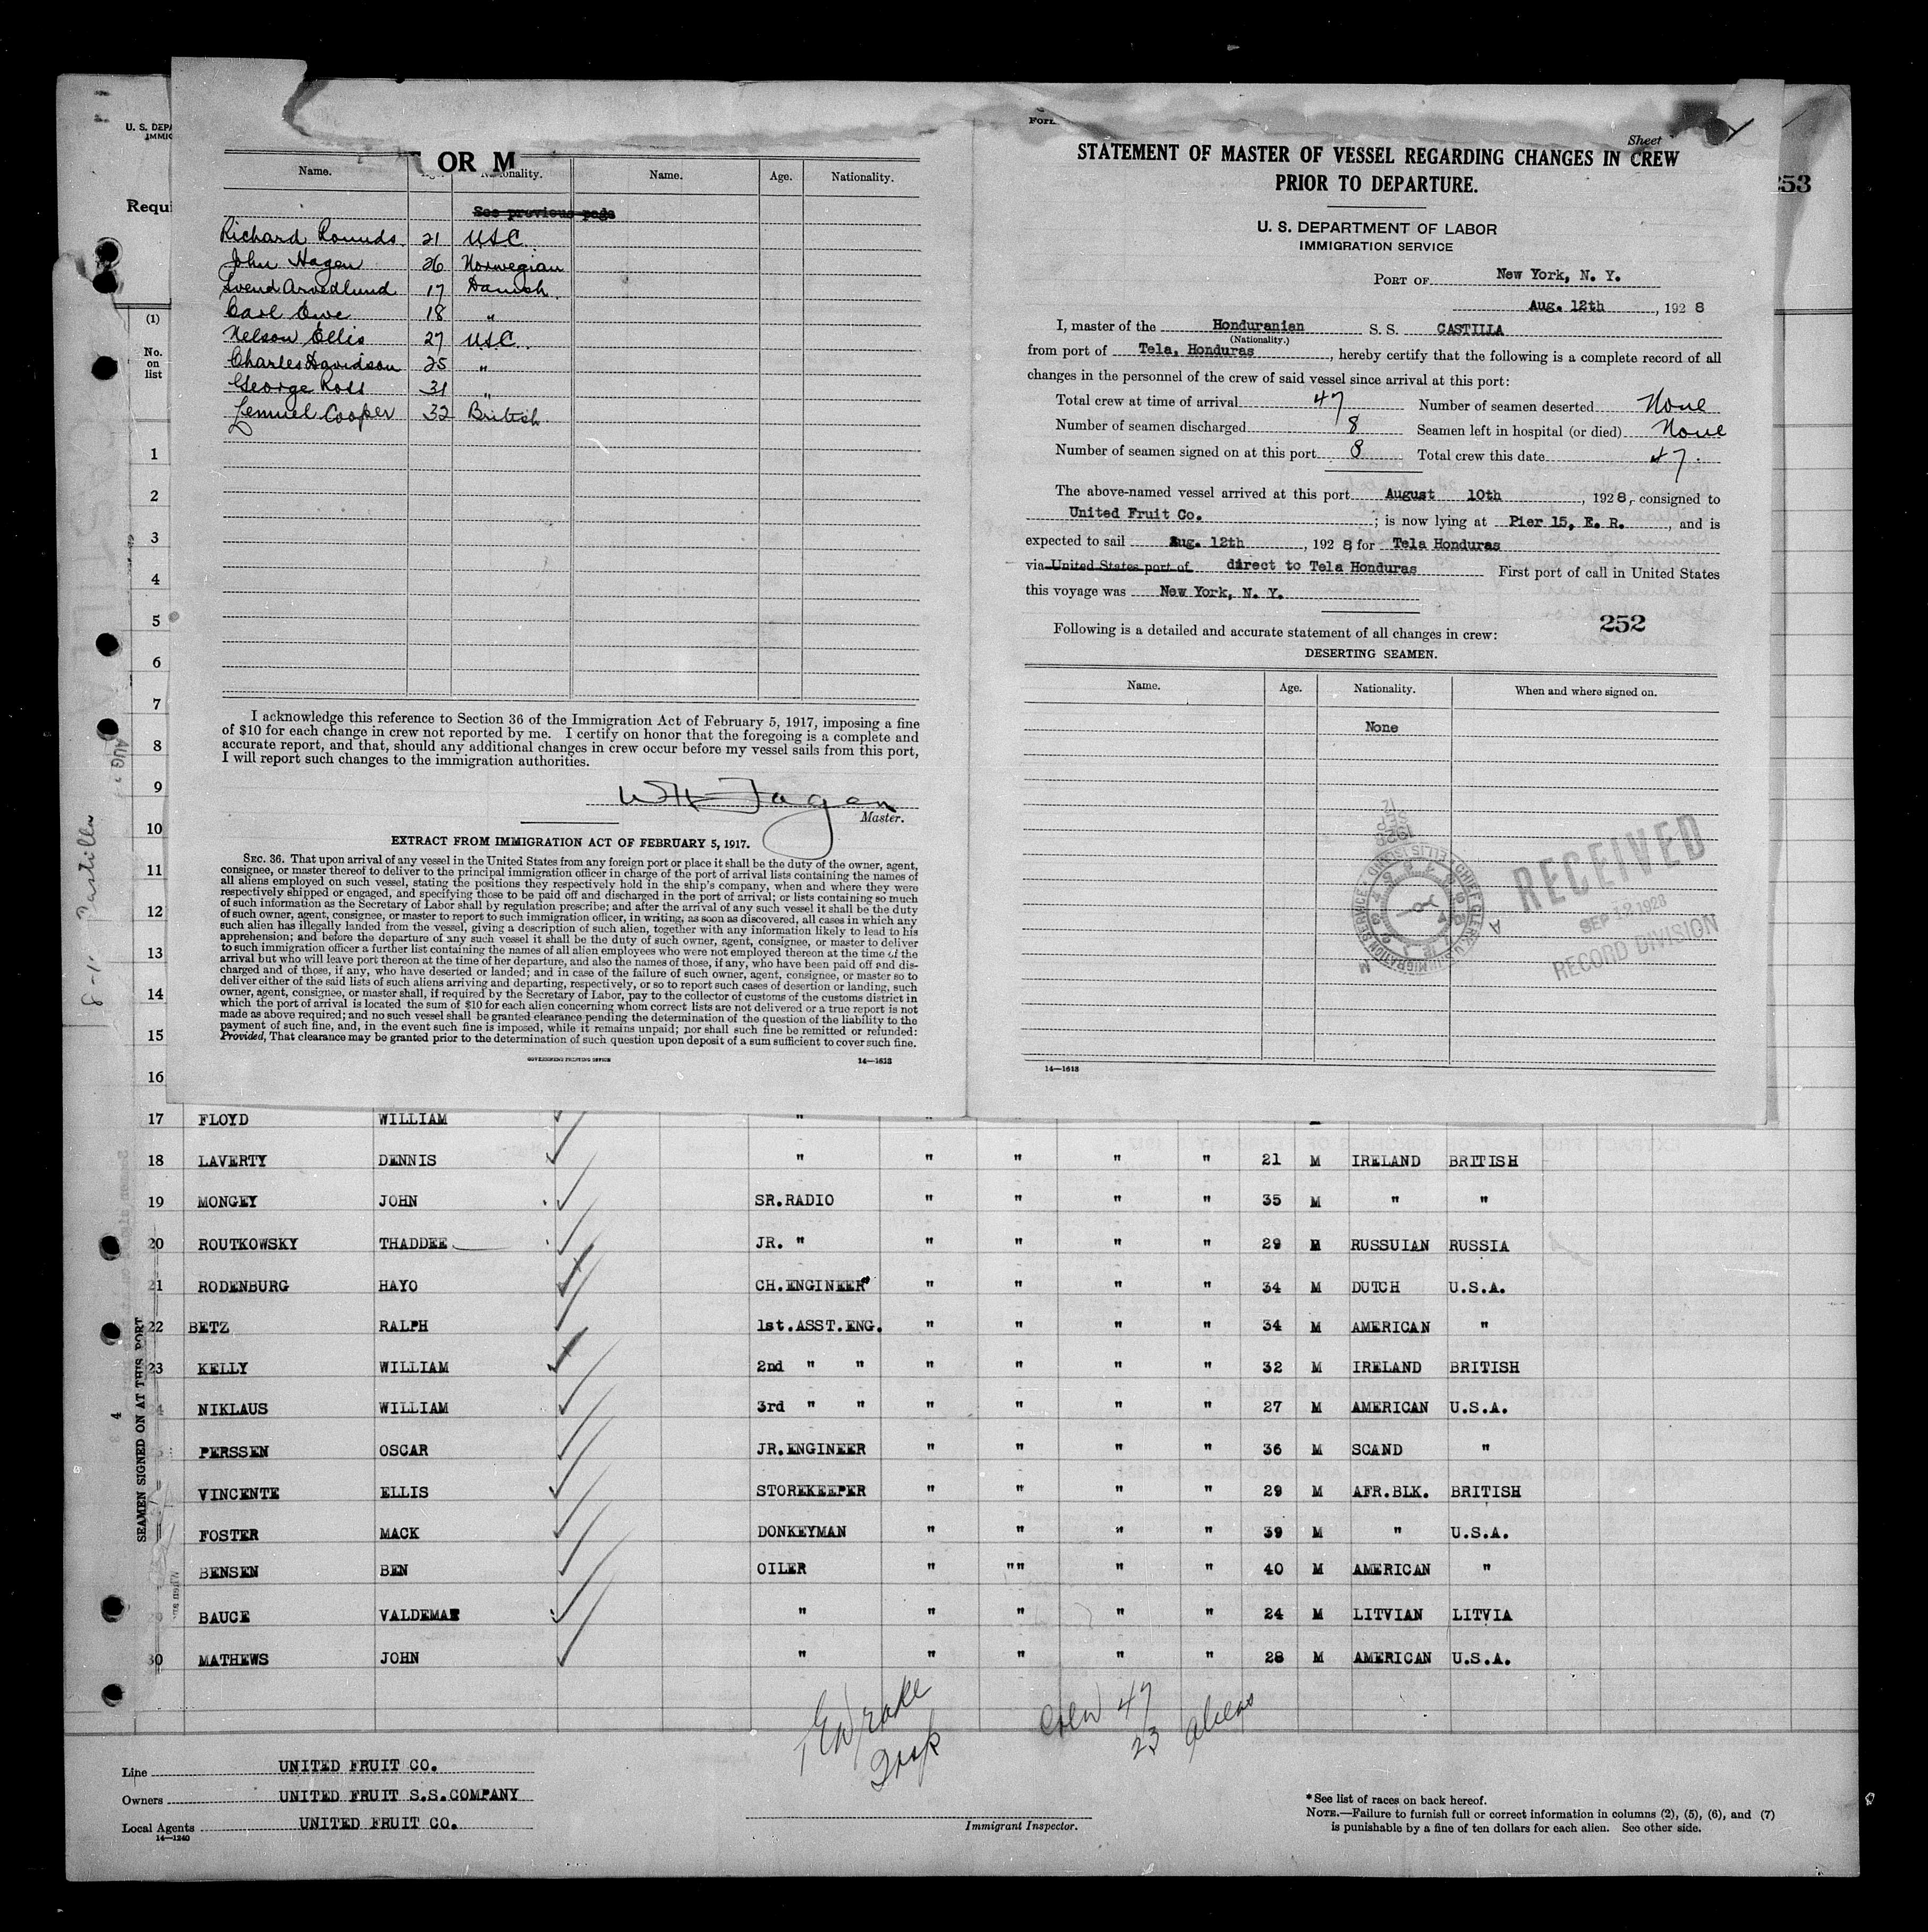 U. S. DEPA
IMMIG
Requi
(1)
No.
on
list
OR M
Name.
Nationality.
Name.
Age.
Nationality.
See previous page
Richard Rounds 21 U.S.C.
John Hagen 26 Norwegian
Svend Arvedlund 17 Danish
Carl Owe 18 "
Nelson Ellis 27 U.S.C.
Charles Davidson 25 "
George Ross 31 "
Lemuel Cooper 32 British
I acknowledge this reference to Section 36 of the Immigration Act of February 5, 1917, imposing a fine
of $10 for each change in crew not reported by me. I certify on honor that the foregoing is a complete and
accurate report, and that, should any additional changes in crew occur before my vessel sails from this port,
I will report such changes to the immigration authorities.
WH Fagen
Master.
EXTRACT FROM IMMIGRATION ACT OF FEBRUARY 5, 1917.
SEC. 36. That upon arrival of any vessel in the United States from any foreign port or place it shall be the duty of the owner, agent,
consignee, or master thereof to deliver to the principal immigration officer in charge of the port of arrival lists containing the names of
all aliens employed on such vessel, stating the positions they respectively hold in the ship's company, when and where they were
respectively shipped or engaged, and specifying those to be paid off and discharged in the port of arrival; or lists containing so much
of such information as the Secretary of Labor shall by regulation prescribe; and after the arrival of any such vessel it shall be the duty
of such owner, agent, consignee, or master to report to such immigration officer, in writing, as soon as discovered, all cases in which any
such alien has illegally landed from the vessel, giving a description of such alien, together with any information likely to lead to his
apprehension; and before the departure of any such vessel it shall be the duty of such owner, agent, consignee, or master to deliver
to such immigration officer a further list containing the names of all alien employees who were not employed thereon at the time of the
arrival but who will leave port thereon at the time of her departure, and also the names of those, if any, who have been paid off and dis-
charged and of those, if any, who have deserted or landed; and in case of the failure of such owner, agent, consignee, or master so to
deliver either of the said lists of such aliens arriving and departing, respectively, or so to report such cases of desertion or landing, such
owner, agent, consignee, or master shall, if required by the Secretary of Labor, pay to the collector of customs of the customs district in
which the port of arrival is located the sum of $10 for each alien concerning whom correct lists are not delivered or a true report is not
made as above required; and no such vessel shall be granted clearance pending the determination of the question of the liability to the
payment of such fine, and, in the event such fine is imposed, while it remains unpaid; nor shall such fine be remitted or refunded:
Provided, That clearance may be granted prior to the determination of such question upon deposit of a sum sufficient to cover such fine.
GOVERNMENT PRINTING OFFICE
14—1613
Form
Sheet
STATEMENT OF MASTER OF VESSEL REGARDING CHANGES IN CREW
PRIOR TO DEPARTURE.
253
U. S. DEPARTMENT OF LABOR
IMMIGRATION SERVICE
PORT OF New York, N. Y.
Aug. 12th, 1928
I, master of the Honduranian S. S. CASTILLA
(Nationality.)
from port of Tela, Honduras, hereby certify that the following is a complete record of all
changes in the personnel of the crew of said vessel since arrival at this port:
Total crew at time of arrival 47 Number of seamen deserted None
Number of seamen discharged 8 Seamen left in hospital (or died) None
Number of seamen signed on at this port 8 Total crew this date 47.
The above-named vessel arrived at this port August 10th, 1928, consigned to
United Fruit Co.; is now lying at Pier 15, E. R., and is
expected to sail Aug. 12th, 1928, for Tela Honduras
via United States port of direct to Tela Honduras First port of call in United States
this voyage was New York, N. Y.
252
Following is a detailed and accurate statement of all changes in crew:
DESERTING SEAMEN.
Name. Age. Nationality. When and where signed on.
None
12
SEP
1928
CHIEF CLERK, U.S. IMMIGRATION SERVICE ELLIS ISLAND
RECEIVED
SEP 12 1928
RECORD DIVISION
14—1613
1
2
3
4
5
6
7
8
9
10
11
12
13
14
15
16
AUG
Castilla
SEAMEN SIGNED ON AT THIS PORT
4
17 FLOYD WILLIAM "
18 LAVERTY DENNIS " " " " " 21 M IRELAND BRITISH
19 MONGEY JOHN SR.RADIO " " " " 35 M " "
20 ROUTKOWSKY THADDEE JR. " " " " " 29 M RUSSUIAN RUSSIA
21 RODENBURG HAYO CH.ENGINEER " " " " 34 M DUTCH U.S.A.
22 BETZ RALPH 1st.ASST.ENG. " " " " 34 M AMERICAN "
23 KELLY WILLIAM 2nd " " " " " " 32 M IRELAND BRITISH
NIKLAUS WILLIAM 3rd " " " " " " 27 M AMERICAN U.S.A.
PERSSEN OSCAR JR.ENGINEER " " " " 36 M SCAND "
VINCENTE ELLIS STOREKEEPER " " " " 29 M AFR.BLK. BRITISH
FOSTER MACK DONKEYMAN " " " " 39 M " U.S.A.
BENSEN BEN OILER " "" " " 40 M AMERICAN "
BAUCE VALDEMAR " " " " " 24 M LITVIAN LITVIA
30 MATHEWS JOHN " " " " " 28 M AMERICAN U.S.A.
Crew 47
23 Aliens
Line UNITED FRUIT CO.
Owners UNITED FRUIT S.S.COMPANY
Local Agents UNITED FRUIT CO.
14—1240
Immigrant Inspector.
*See list of races on back hereof.
NOTE.—Failure to furnish full or correct information in columns (2), (5), (6), and (7)
is punishable by a fine of ten dollars for each alien. See other side.